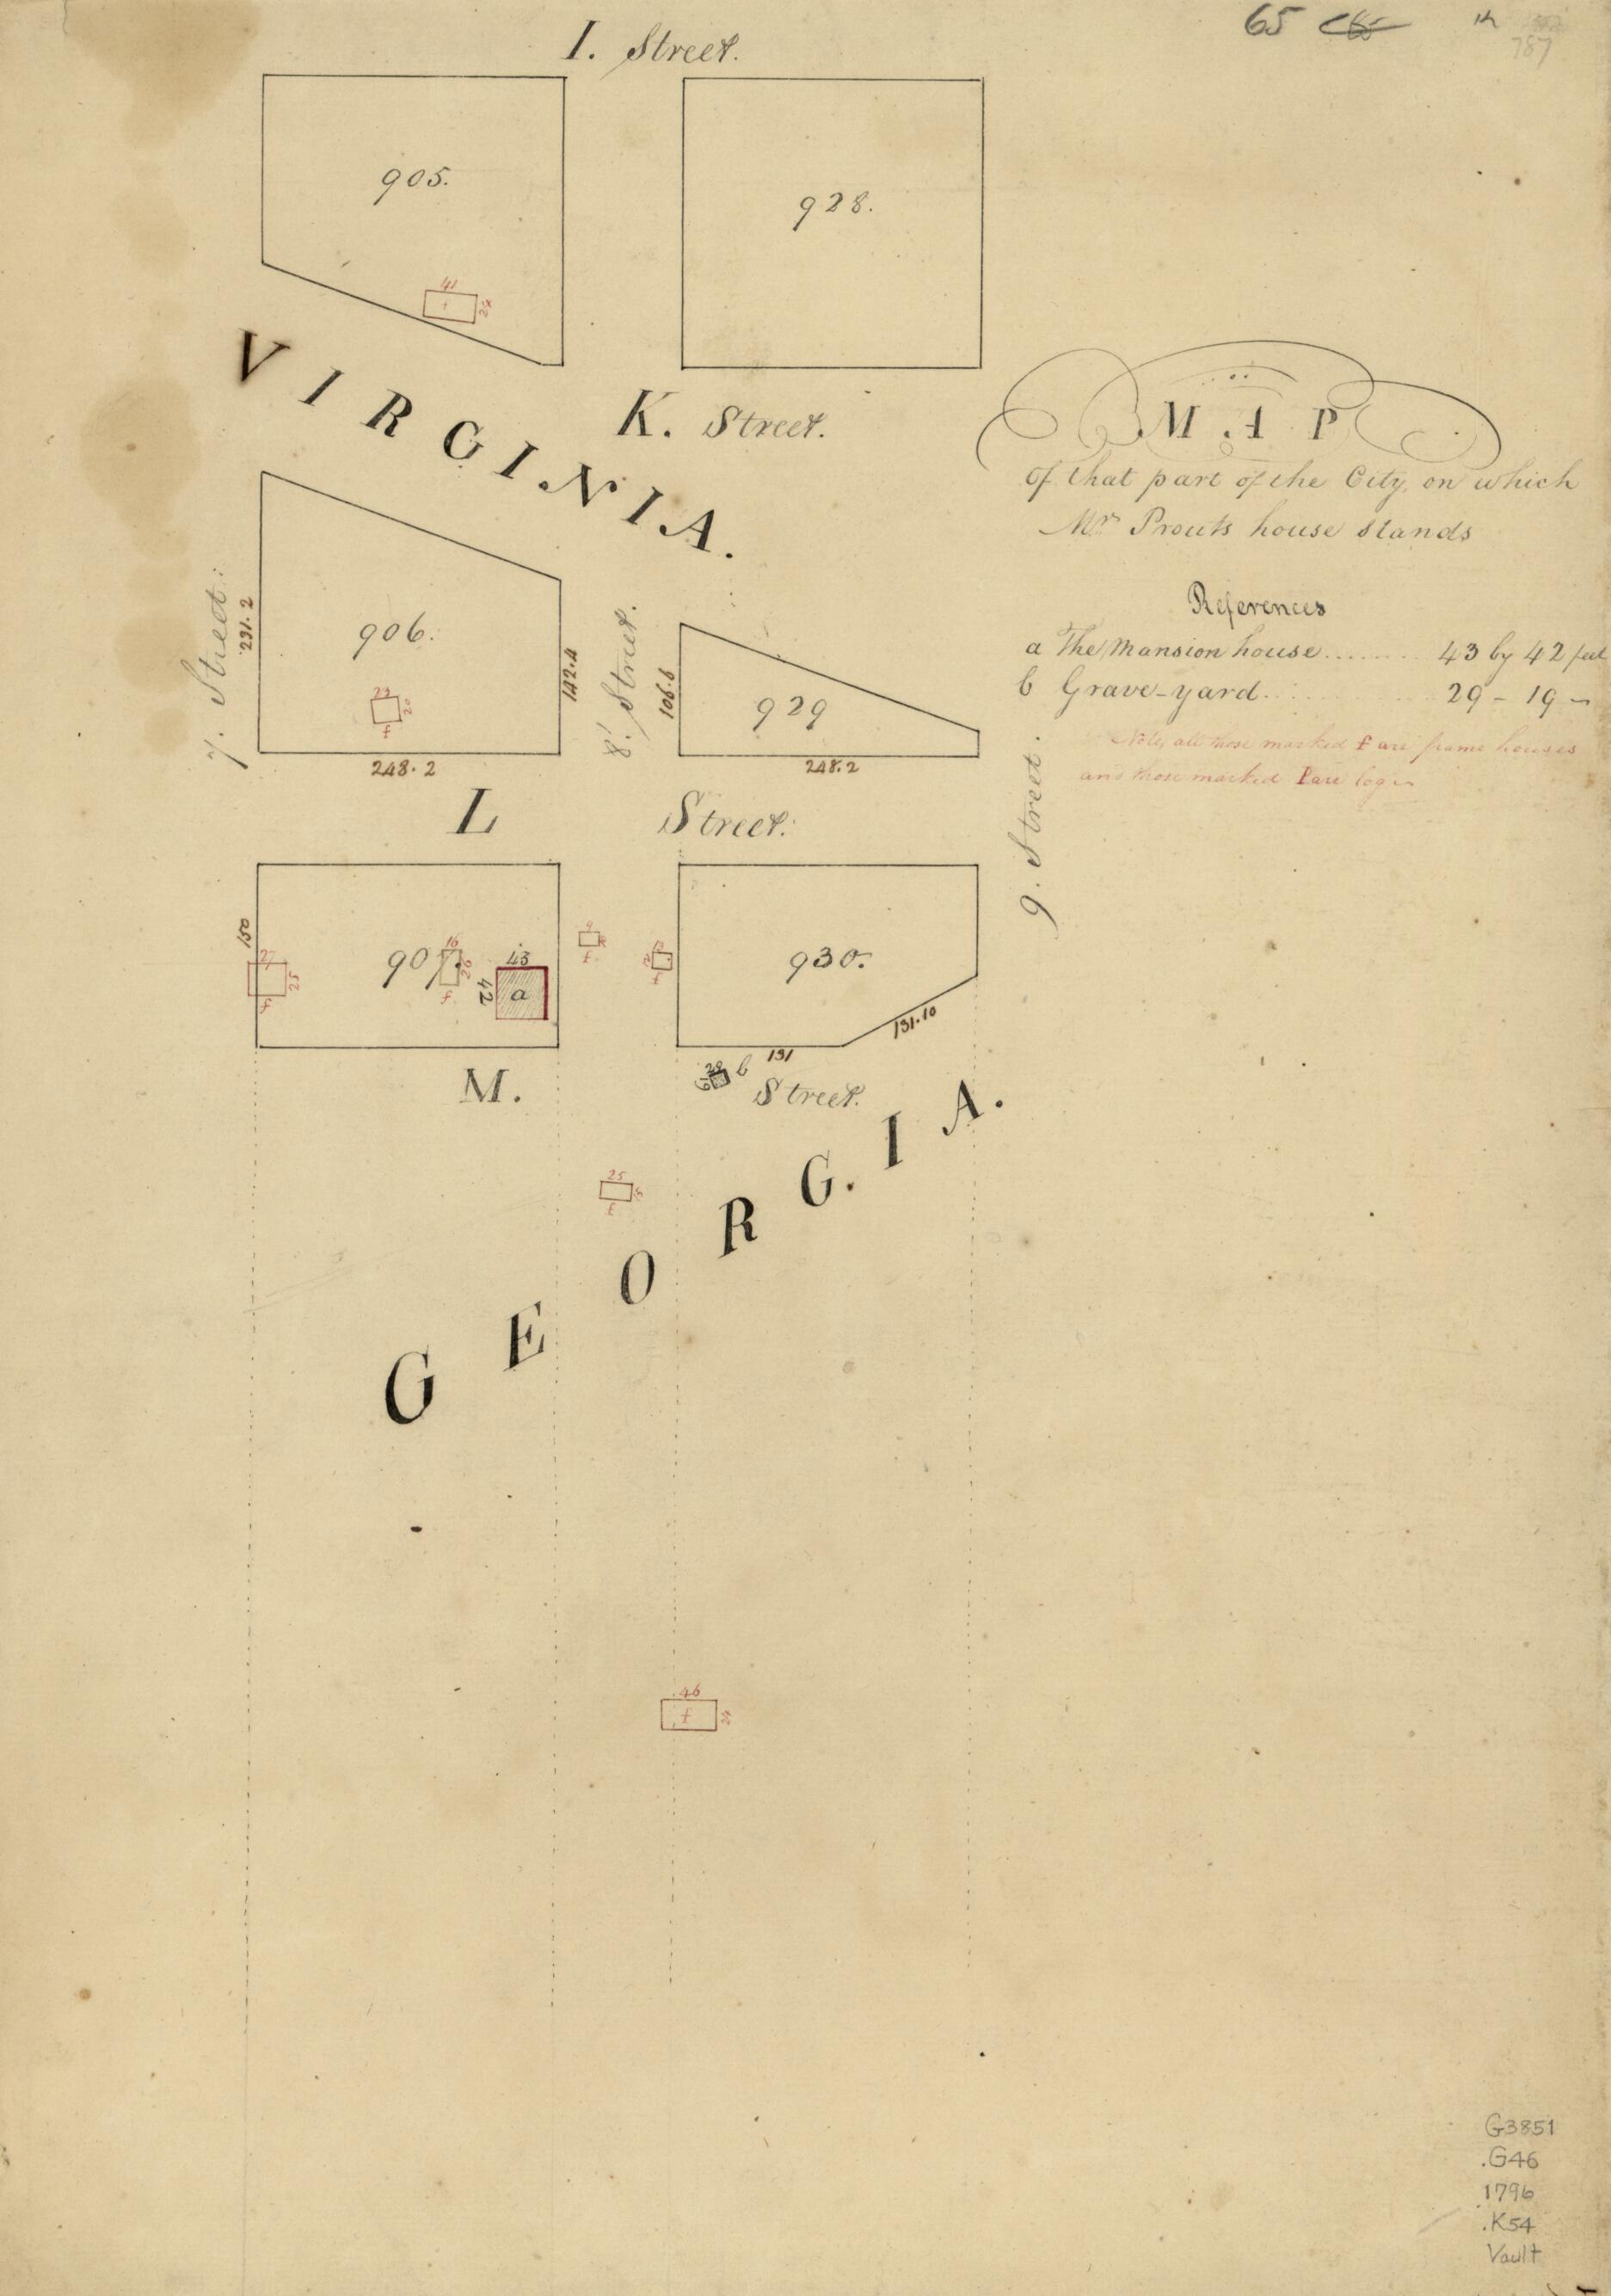 65
787
I. Street.
905.
928.
41
24
VIRGINIA.
K. Street.
MAP
of that part of the City, on which
Mr Prouts house stands
References
a The Mansion house ....... 43 by 42 feet
b Grave-yard. 29 - 19 -
Note, all those marked f are frame houses
and those marked l are log
7. Street.
231.2
906.
20
f
142.4
248.2
8. Street.
106.8
929
248.2
9. Street.
L Street.
150
27
25
f
907.
16
26
f
43
42
a
f
12
f
930.
131.10
131
b
M. Street.
GEORGIA.
25
f
46
f
24
G3851
.G46
1796
.K54
Vault